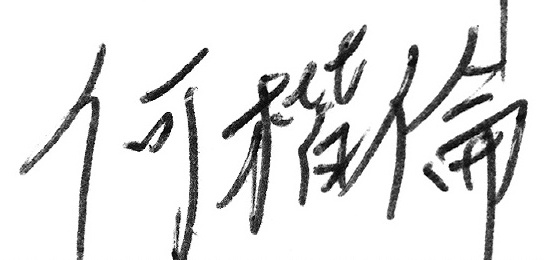 何權倫